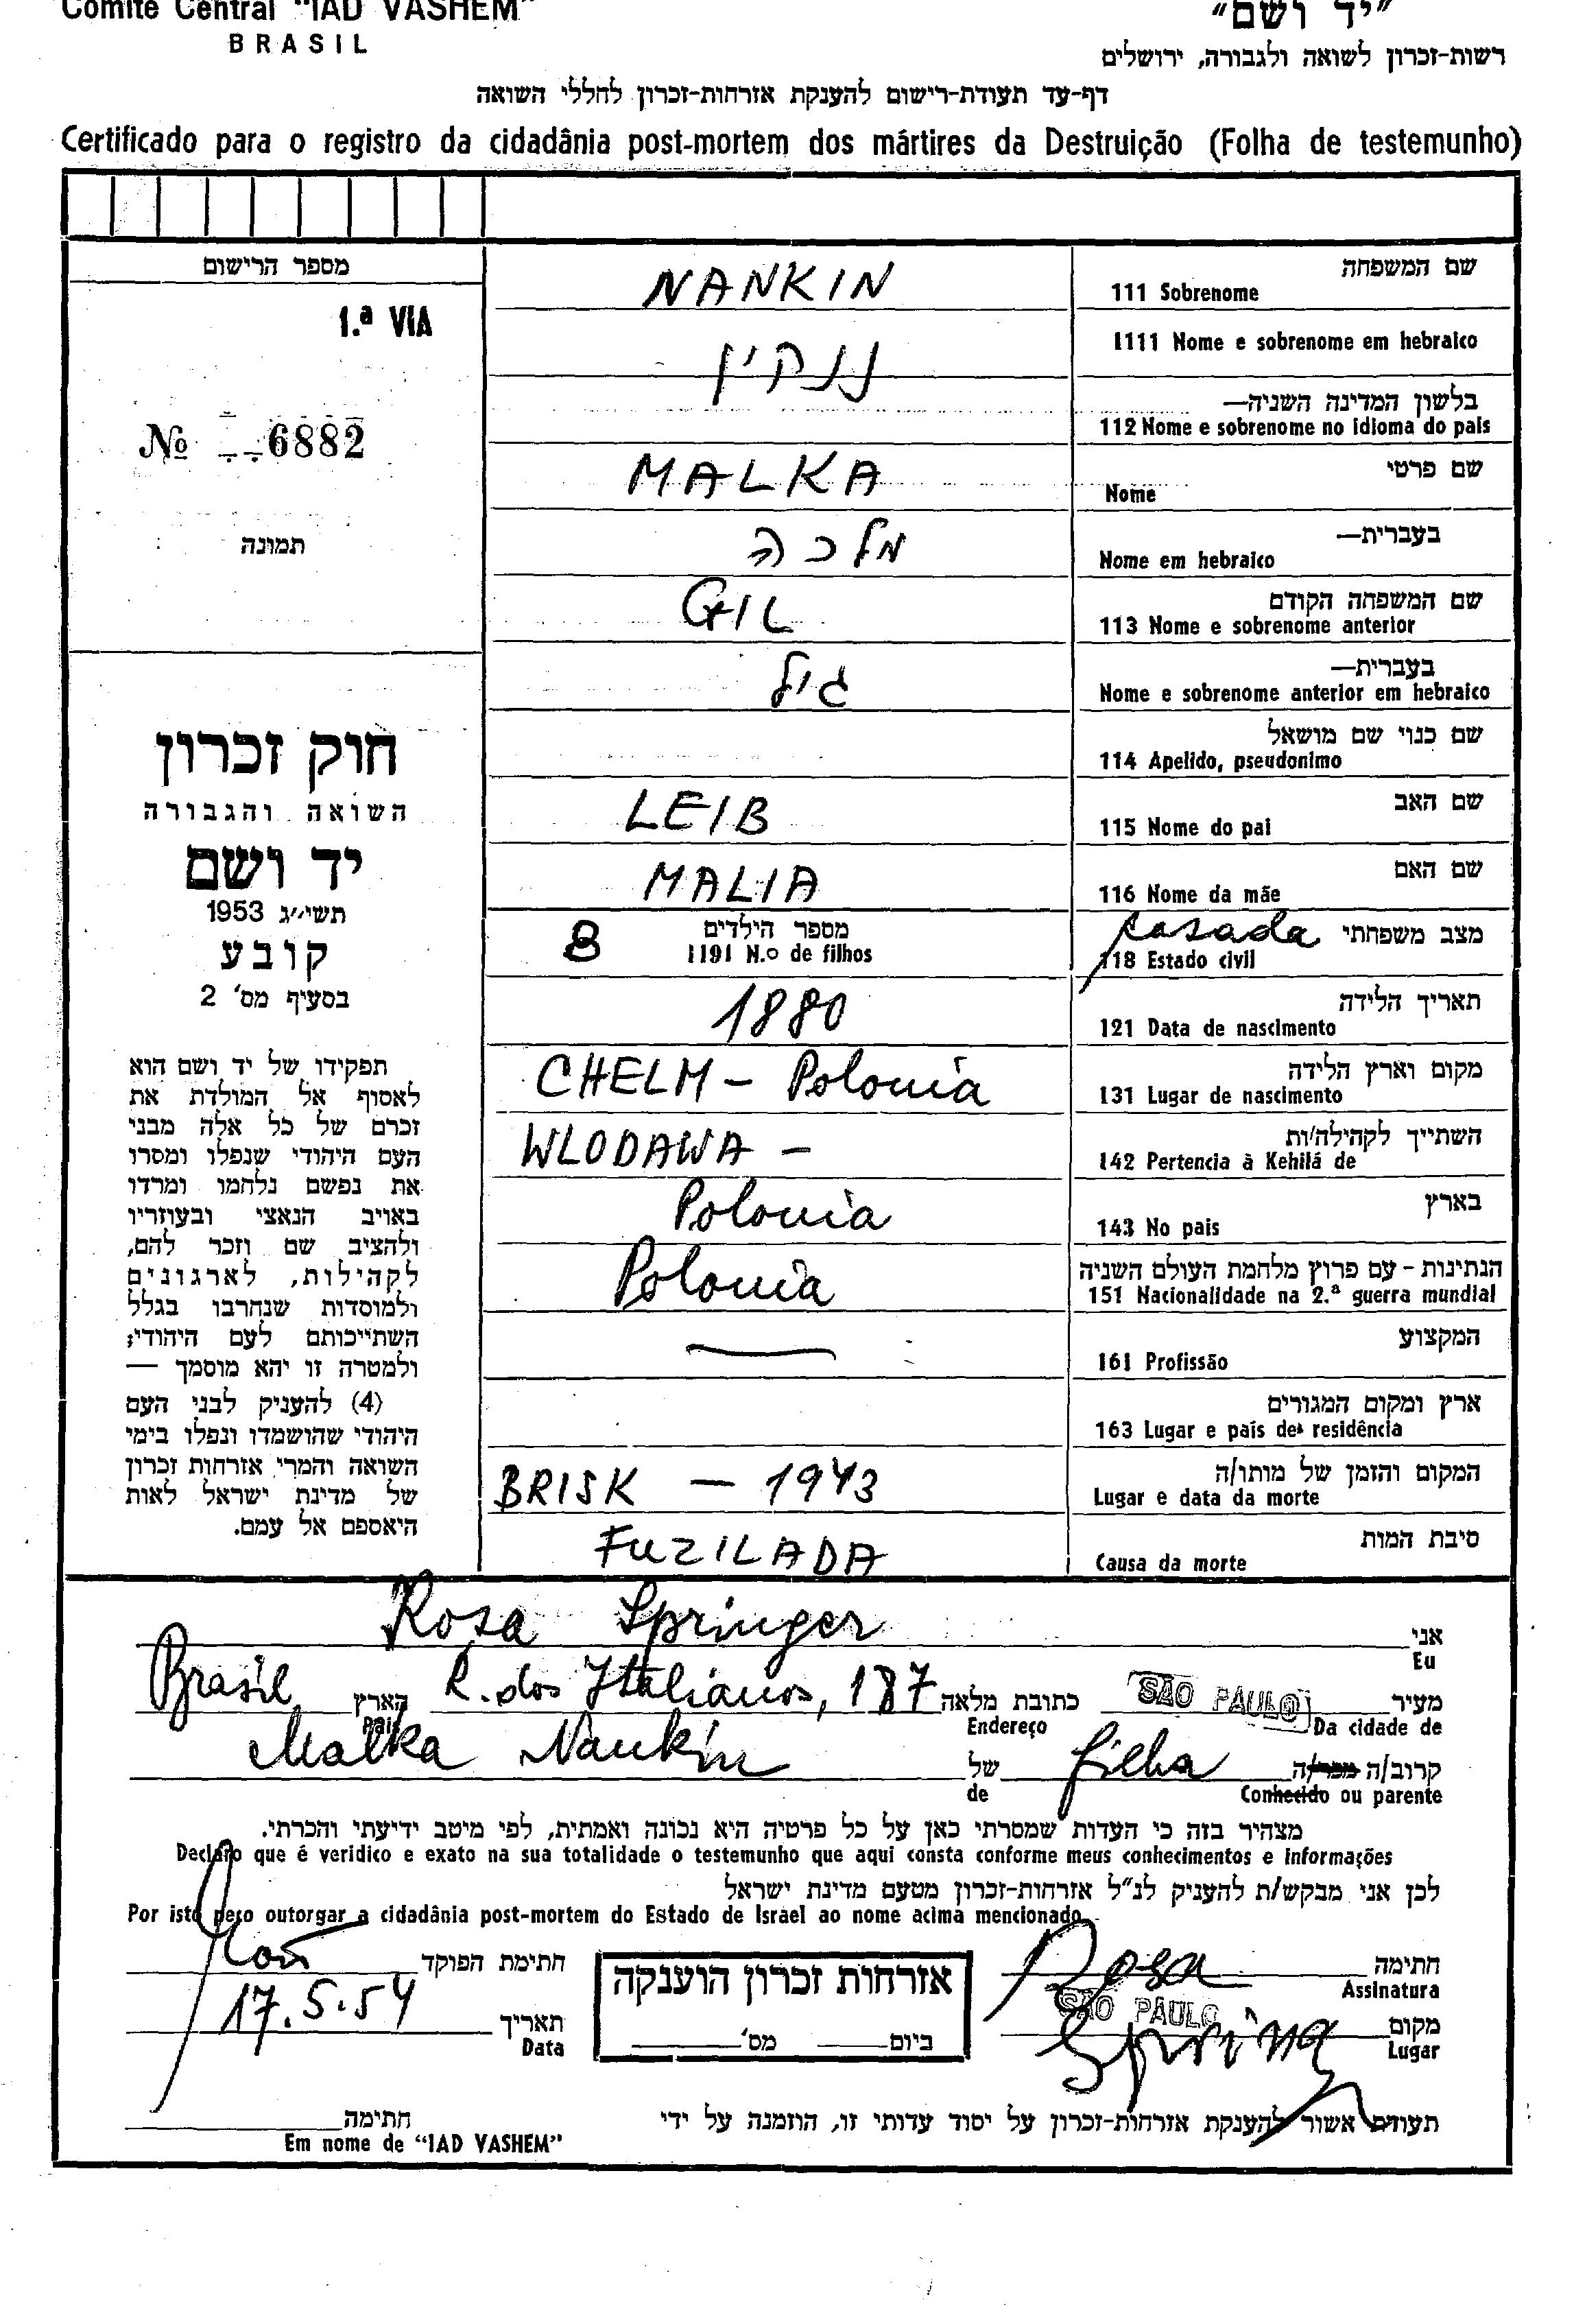 Comité Central "IAD VASHEM"
BRASIL
"יד ושם"
רשות-זכרון לשואה ולגבורה, ירושלים
דף-עד תעודת-רישום להענקת אזרחות-זכרון לחללי השואה
Certificado para o registro da cidadânia post-mortem dos mártires da Destruição (Folha de testemunho)
מספר הרישום
1.ª VIA
Nº 6882
תמונה
חוק זכרון
השואה והגבורה
יד ושם
תשי"ג 1953
קובע
בסעיף מס' 2
תפקידו של יד ושם הוא
לאסוף אל המולדת את
זכרם של כל אלה מבני
העם היהודי שנפלו ומסרו
את נפשם נלחמו ומרדו
באויב הנאצי ובעוזריו
ולהציב שם וזכר להם,
לקהילות, לארגונים
ולמוסדות שנחרבו בגלל
השתייכותם לעם היהודי;
ולמטרה זו יהא מוסמך —
(4) להעניק לבני העם
היהודי שהושמדו ונפלו בימי
השואה והמרי אזרחות זכרון
של מדינת ישראל לאות
היאספם אל עמם.
שם המשפחה
111 Sobrenome NANKIN
1111 Nome e sobrenome em hebraico ננקין
בלשון המדינה השניה—
112 Nome e sobrenome no idioma do pais
שם פרטי
Nome MALKA
בעברית—
Nome em hebraico מלכה
שם המשפחה הקודם
113 Nome e sobrenome anterior GIL
בעברית—
Nome e sobrenome anterior em hebraico גיל
שם כנוי שם מושאל
114 Apelido, pseudonimo
שם האב
115 Nome do pai LEIB
שם האם
116 Nome da mãe MALIA
מצב משפחתי casada מספר הילדים
118 Estado civil 1191 N.o de filhos 8
תאריך הלידה
121 Data de nascimento 1880
מקום וארץ הלידה
131 Lugar de nascimento CHELM - Polonia
השתייך לקהילה/ות
142 Pertencia à Kehilá de WLODAWA -
בארץ
143 No pais Polonia
הנתינות - עם פרוץ מלחמת העולם השניה
151 Nacionalidade na 2.ª guerra mundial Polonia
המקצוע
161 Profissão —
ארץ ומקום המגורים
163 Lugar e país de residência
המקום והזמן של מותו/ה
Lugar e data da morte BRISK - 1943
סיבת המות
Causa da morte FUZILADA
אני Rosa Springer
Eu
מעיר SÃO PAULO כתובת מלאה R. dos Italianos, 187 הארץ Brasil
Da cidade de Endereço Pais
קרוב/ה מכר/ה filha של Malka Nankin
Conhecido ou parente de
מצהיר בזה כי העדות שמסרתי כאן על כל פרטיה היא נכונה ואמתית, לפי מיטב ידיעתי והכרתי.
Declaro que é veridico e exato na sua totalidade o testemunho que aqui consta conforme meus conhecimentos e informações
לכן אני מבקש/ת להעניק לנ"ל אזרחות-זכרון מטעם מדינת ישראל
Por isto peço outorgar a cidadânia post-mortem do Estado de Israel ao nome acima mencionado
חתימה Rosa חתימת הפוקד
Assinatura
אזרחות זכרון הוענקה
ביום מס'
מקום SÃO PAULO Spring תאריך 17.5.54
Lugar Data
תעודת אשור להענקת אזרחות-זכרון על יסוד עדותי זו, הוזמנה על ידי חתימה
Em nome de "IAD VASHEM"